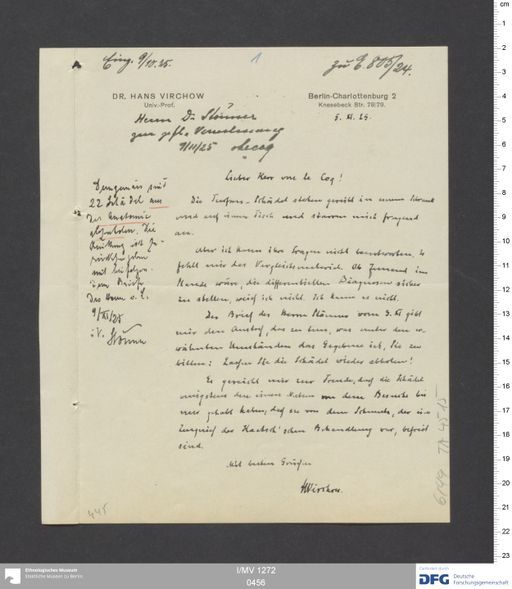 Eing. 9/XI. 25.
1
zu E 805/24.
DR. HANS VIRCHOW
Univ.-Prof.
Berlin-Charlottenburg 2
Knesebeck Str. 78/79.
5. XI. 25.
Herrn Dr. Stönner
zur gefl. Veranlassung
9/XI/25 Lecoq
Lieber Herr von Le Coq!
Die Turfan-Schädel stehen gereiht in einem Schrank
und auf einem Tisch und starren mich fragend
an.
Aber ich kann ihre Fragen nicht beantworten. Es
fehlt mir das Vergleichsmaterial. Ob Jemand im
Stande wäre, die differentiellen Diagnosen sicher
zu stellen, weiß ich nicht. Ich kann es nicht.
Der Brief des Herrn Stönner vom 3. XI gibt
mir den Anstoß, das zu tun, was unter den er-
wähnten Umständen das Gegebene ist, Sie zu
bitten: Lassen Sie die Schädel wieder abholen!
Es gereicht mir zur Freude, daß die Schädel
wenigstens den einen Nutzen von dem Besuche bei
mir gehabt haben, daß sie von dem Schmutz, der
sind.
Behandlung
befreit
Mit besten Grüßen
HVirchow.
22 Schädel aus
der Anatomie
abgeholt. Die
Quittung ist zu-
rückzugeben
mit
9/XI/25
i. V. Stönner
445
I/MV 1272
0456
Ethnologisches Museum
Staatliche Museen zu Berlin
Gefördert durch
DFG Deutsche
Forschungsgemeinschaft
cm
1
2
3
4
5
6
7
8
9
10
11
12
13
14
15
16
17
18
19
20
21
22
23